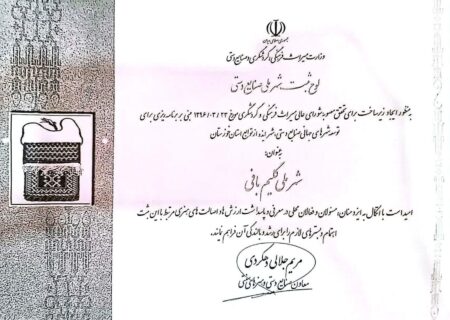 جمهوری اسلامی ایران
وزارت میراث فرهنگی، گردشگری و صنایع دستی
لوح ثبت شهر ملی صنایع دستی
به منظور ایجاد زیرساخت برای تحقق مصوبه شورای عالی میراث فرهنگی و گردشگری مورخ ۱۳۹۶/۰۲/۲۳ مبنی بر برنامه ریزی برای
توسعه شهرهای جهانی صنایع دستی، شهر ایذه از توابع استان خوزستان
بعنوان:
شهر ملی گلیم بافی
امید است با اتکال به ایزد منان، مسئولان و فعالان محلی در معرفی و پاسداشت ارزش ها و اصالت های هنری مرتبط با این ثبت
اهتمام و بسترهای لازم را برای رشد و بالندگی آن فراهم نمایند.
مریم جلالی دهکردی
معاون صنایع دستی و هنرهای سنتی